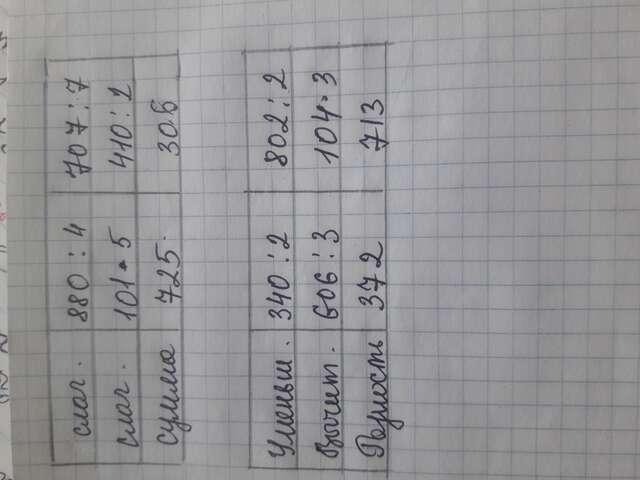 слаг. 880 : 4 707 : 7
слаг. 101 • 5 410 : 2
сумма 725. 306
Уменьш. 340 : 2 802 : 2
Вычит. 606 : 3 104 • 3
Разность 372 713